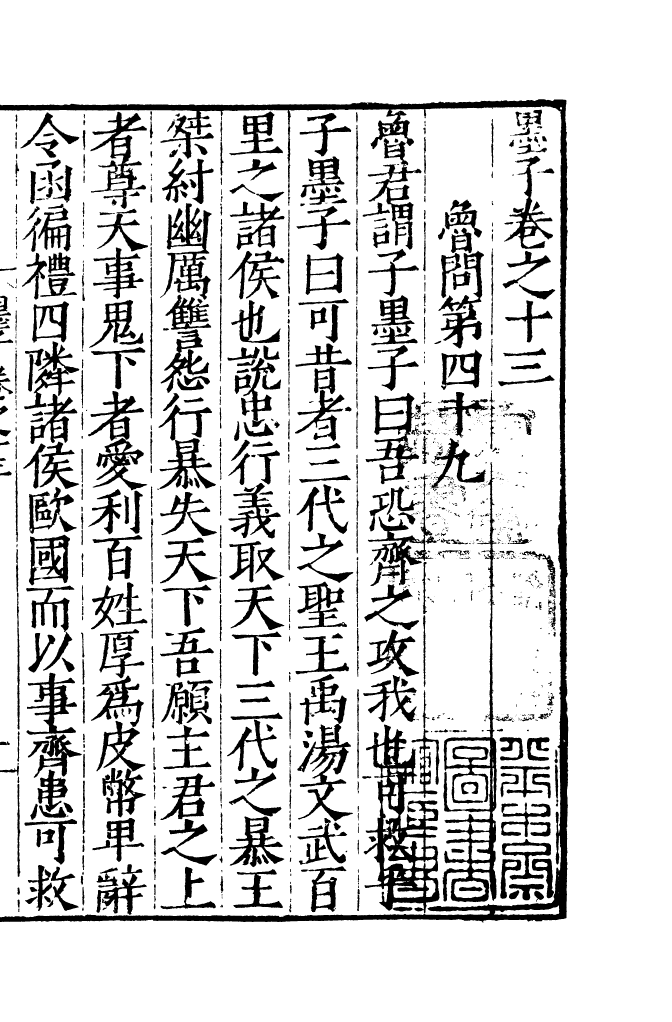 墨子卷之十三
魯問第四十九
魯君謂子墨子曰吾恐齊之攻我也可救乎
子墨子曰可昔者三代之聖王禹湯文武百
里之諸侯也說忠行義取天下三代之暴王
桀紂幽厲讐怨行暴失天下吾願主君之上
者尊天事鬼下者愛利百姓厚爲皮幣卑辭
令函徧禮四隣諸侯歐國而以事齊患可救